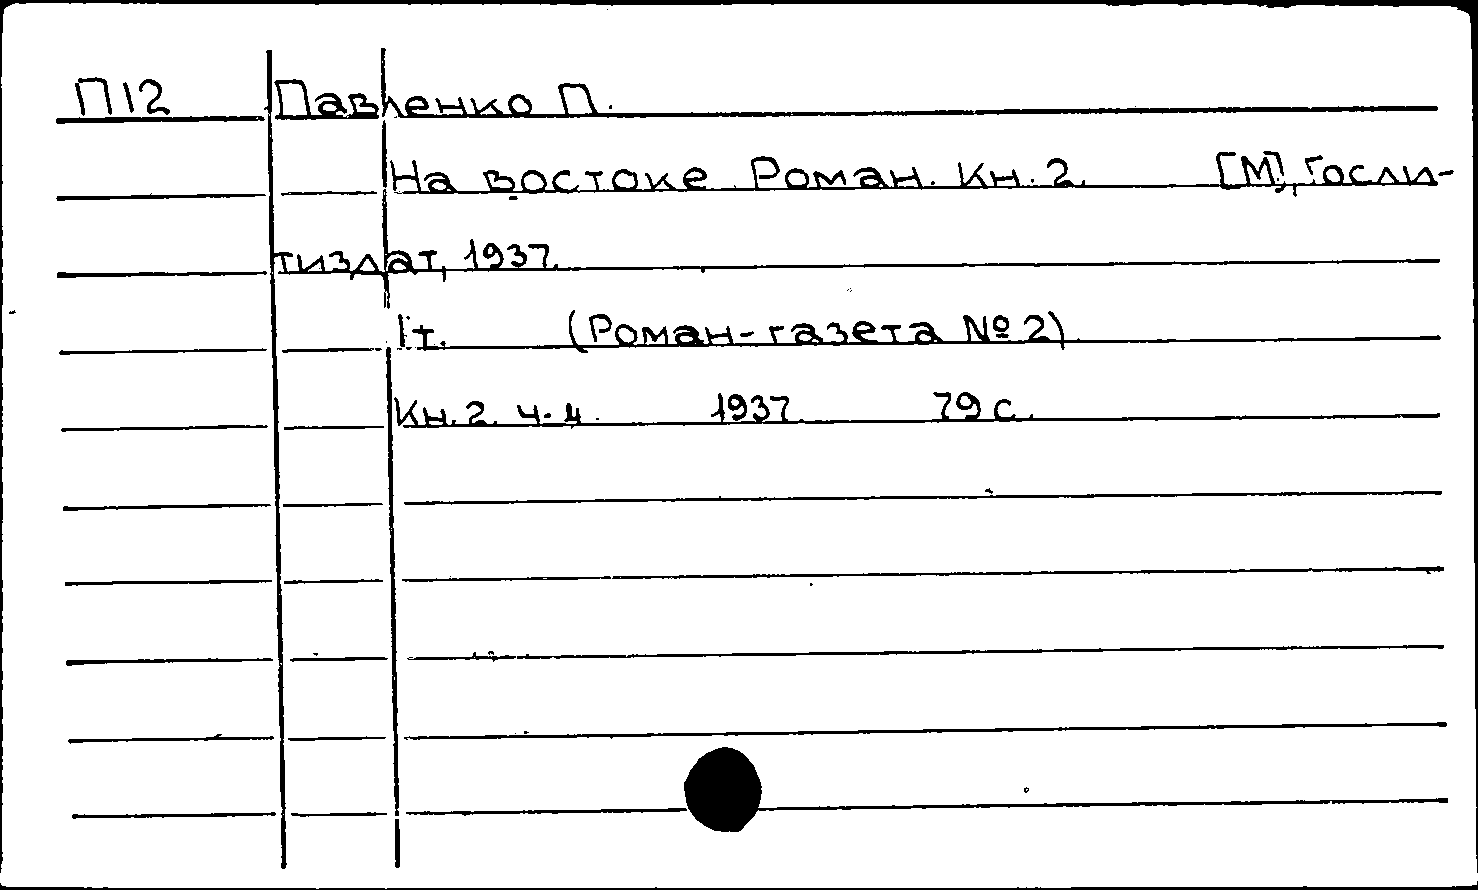 П12 Павленко П.
На востоке Роман. Кн. 2. [М], Госли-
тиздат, 1937.
1т. (Роман-газета № 2)
Кн. 2. ч-4. 1937 79 с.